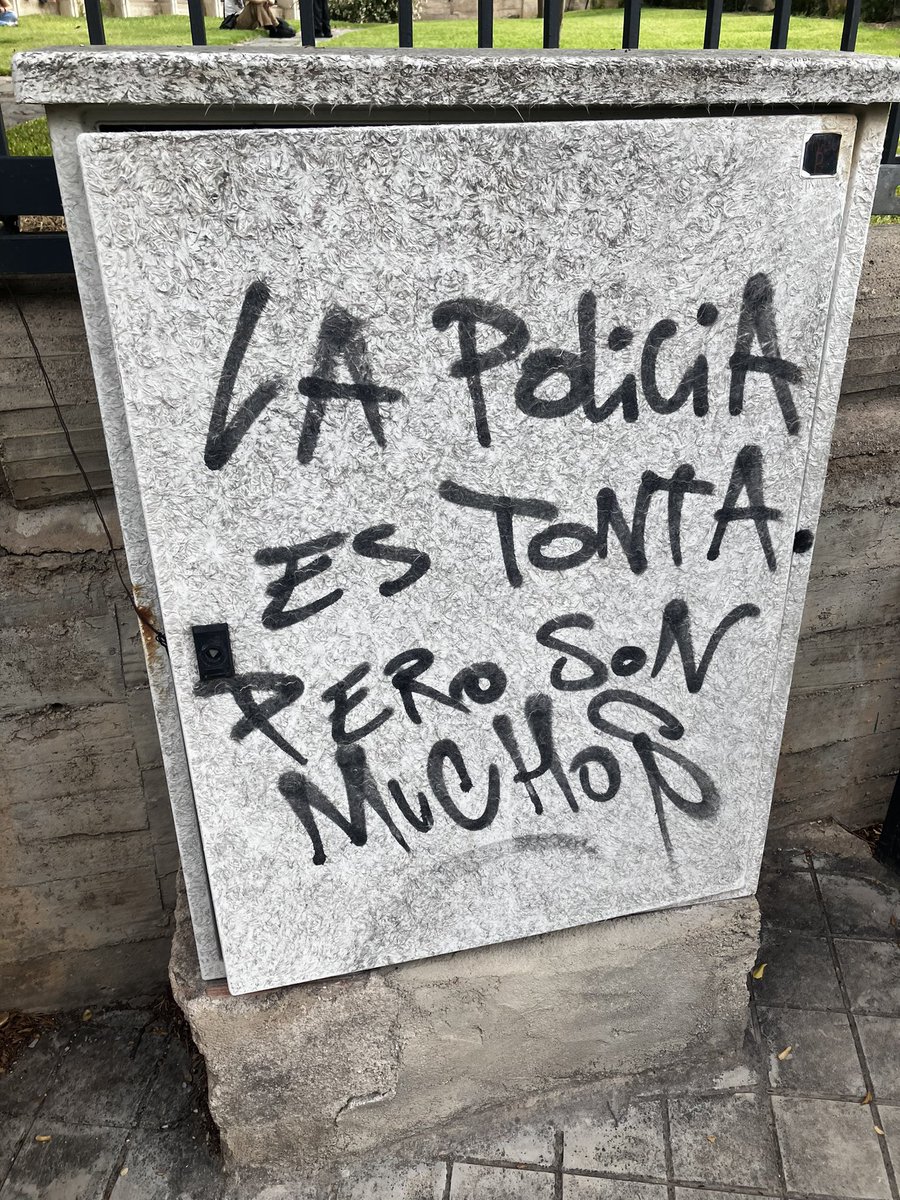 LA PoliciA
ES TONTA.
PERO SON
MuCHOS